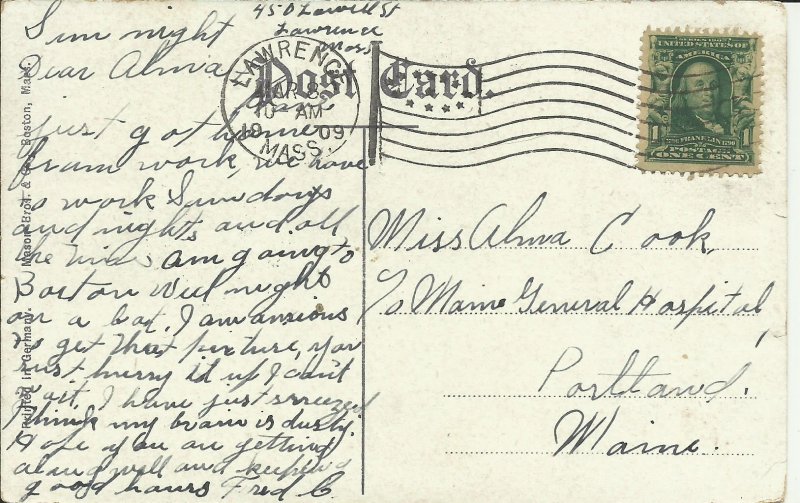 450 Lowell St
Lawrence
Mass
Sun night
Dear Alma
Have
just got home
from work, we have
to work Sundays
and nights and all
the time am going to
Boston Wed night
on a bat. I am anxious
to get that picture, you
just hurry it up I can't
wait. I have just sneezed
I think my brain is dusty.
Hope you are getting
along well and keeping
good hours Fred C
Post Card.
LAWRENCE
MAR 8
10 AM
19 09
MASS.
SERIES 1902
UNITED STATES OF
AMERICA
FRANKLIN
1 POSTAGE 1
ONE CENT
Miss Alma Cook,
c/o Maine General Hospital,
Portland,
Maine.
Mason Bros. & Co., Boston, Mass.
Printed in Germany.